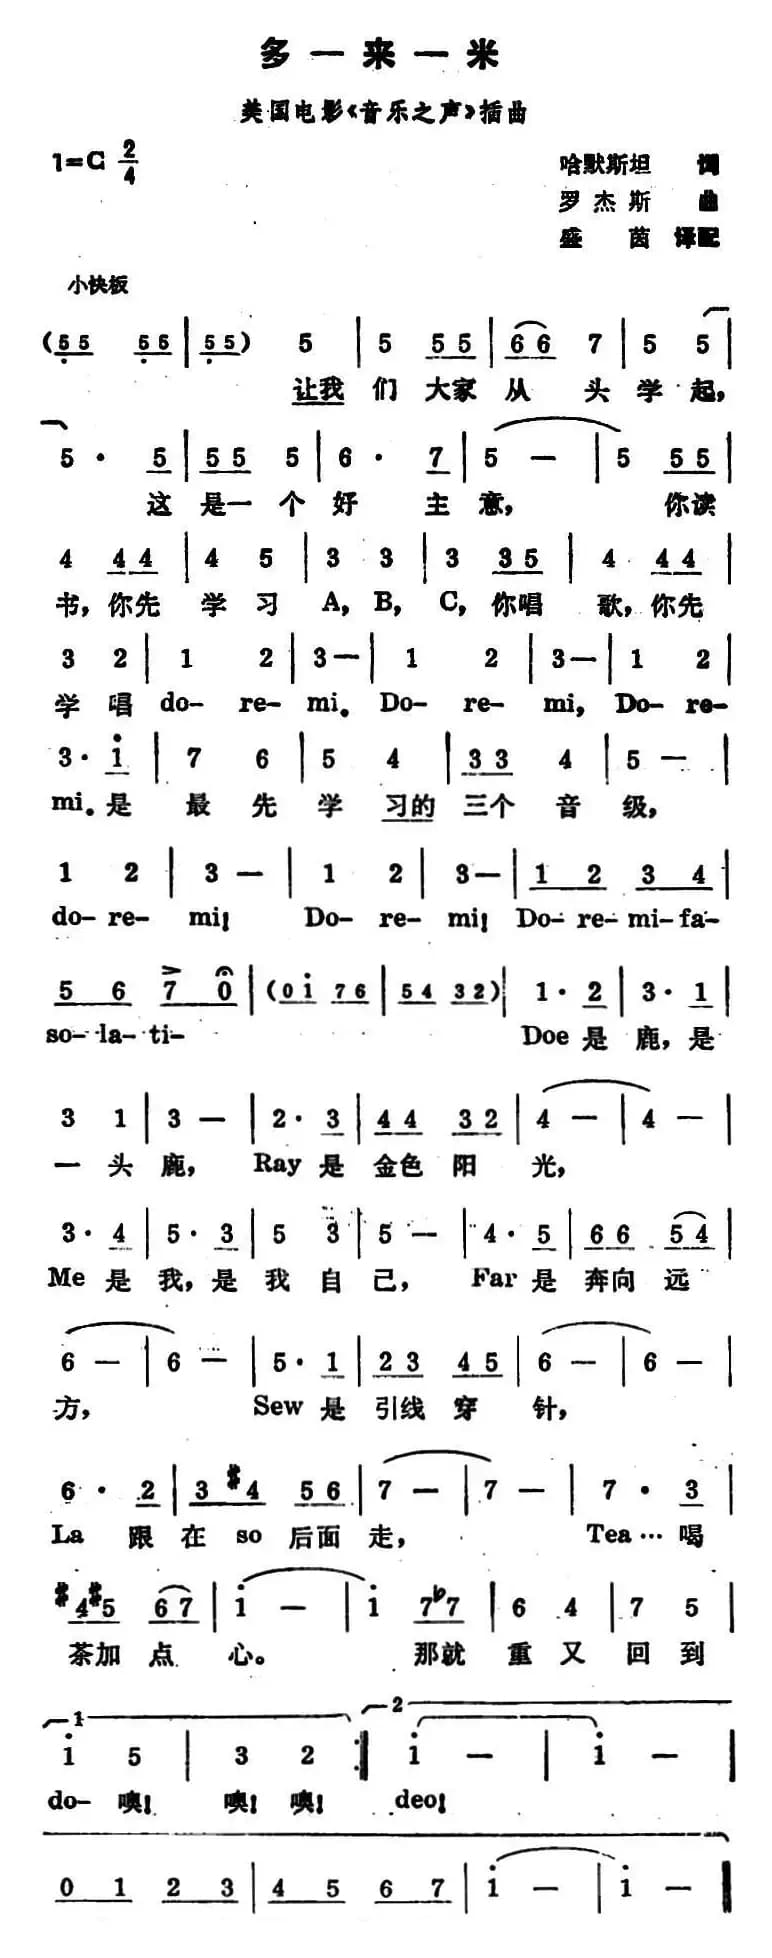 多一来一米
美国电影《音乐之声》插曲
1=C 2/4
哈默斯坦 词
罗杰斯 曲
盛茵 译配
小快板
(55 55 | 55) 5 | 5 55 | 66 7 | 5 5 |
让我们大家从头学起,
5 · 5 | 55 5 | 6 · 7 | 5 — | 5 55 |
这是一个好主意, 你读
4 44 | 4 5 | 3 3 | 3 35 | 4 44 |
书,你先学习A,B,C,你唱歌,你先
3 2 | 1 2 | 3— | 1 2 | 3— | 1 2 |
学唱do-re-mi。Do-re-mi,Do-re-
3· i | 7 6 | 5 4 | 33 4 | 5 — |
mi。是最先学习的三个音级,
1 2 | 3 — | 1 2 | 3— | 1 2 3 4 |
do-re-mi! Do-re-mi! Do-re-mi-fa-
5 6 7 0 | (0i 76 | 54 32) | 1· 2 | 3· 1 |
so-la-ti- Doe是鹿,是
3 1 | 3 — | 2· 3 | 44 32 | 4 — | 4 — |
一头鹿, Ray是金色阳光,
3· 4 | 5· 3 | 5 3 | 5 — | 4· 5 | 66 54 |
Me是我,是我自己, Far是奔向远
6 — | 6 — | 5· 1 | 23 45 | 6 — | 6 — |
方, Sew是引线穿针,
6 · 2 | 3 #4 56 | 7 — | 7 — | 7 · 3 |
La跟在so后面走, Tea…喝
#4#5 67 | i — | i 7♭7 | 6 4 | 7 5 |
茶加点心。 那就重又回到
1 2
i 5 | 3 2 :| i — | i — |
do-噢!噢!噢! deo!
0 1 2 3 | 4 5 6 7 | i — | i — |